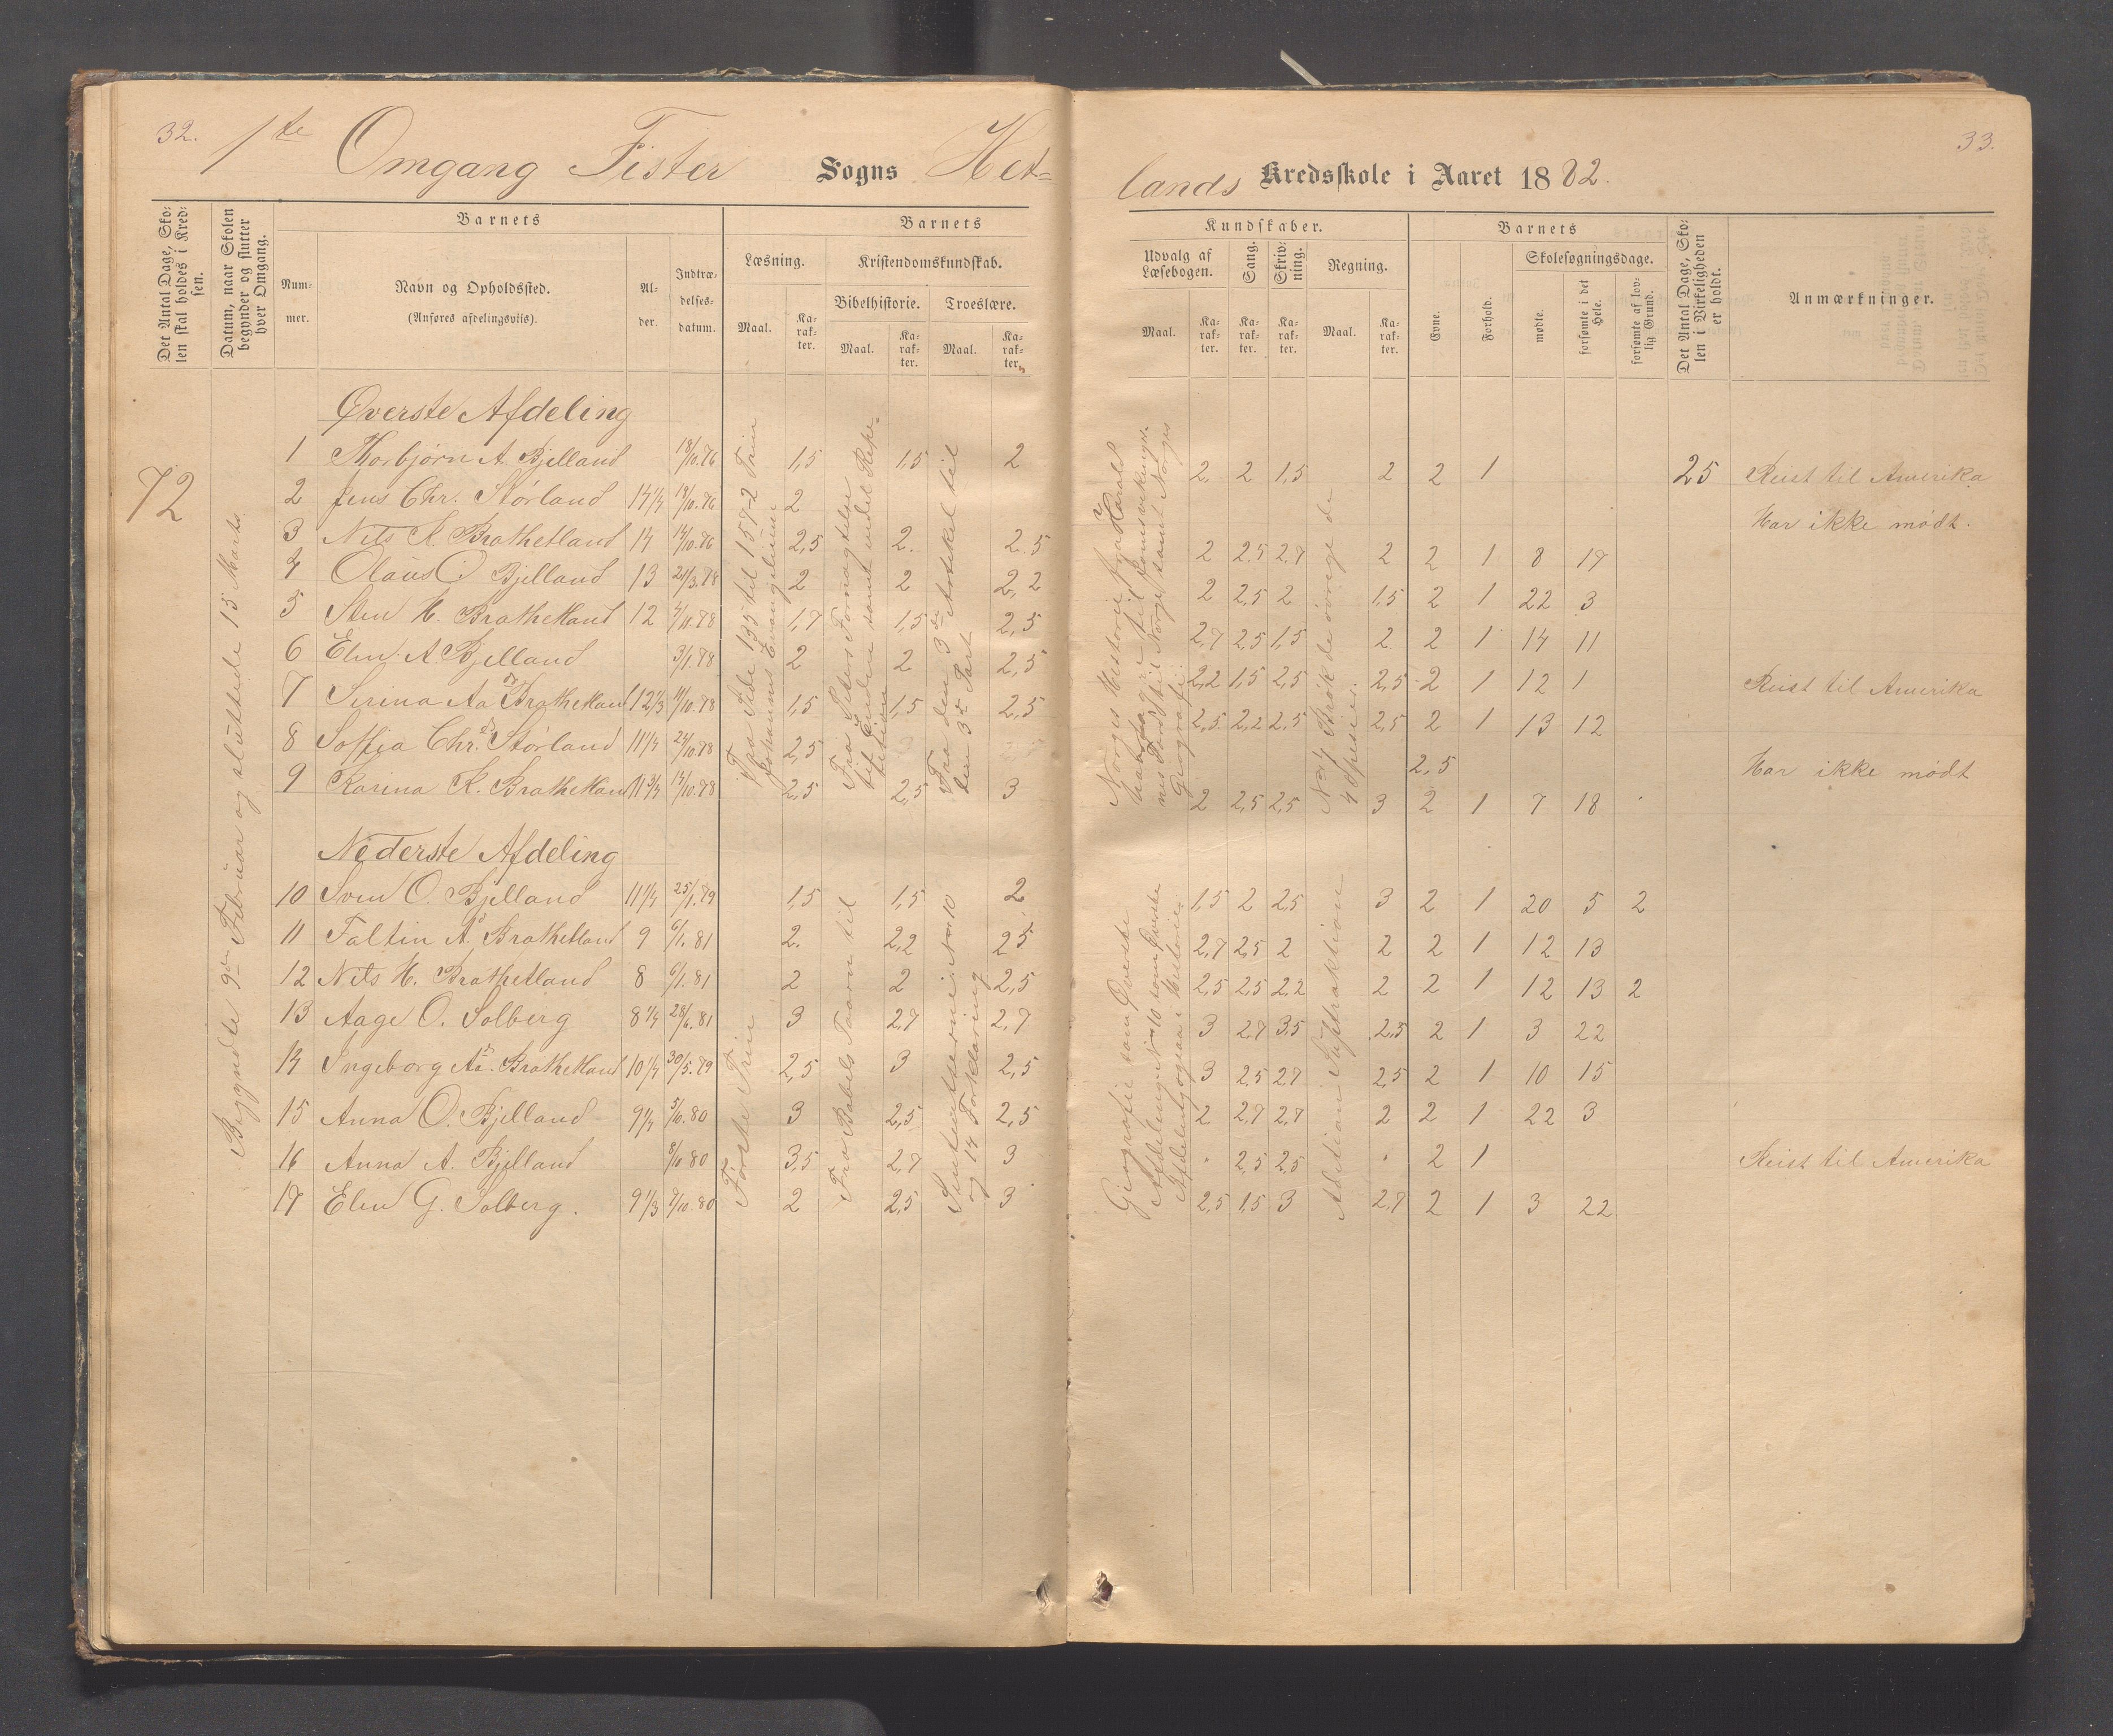 32.
1te Omgang Fister Sogns Het=
Det Antal Dage, Skolen skal holdes i Kredsen.
Datum, naar Skolen begynder og slutter hver Omgang.
Barnets
Nummer.
Navn og Opholdssted.
(Anføres afdelingsviis).
Alder.
Indtrædelsesdatum.
Barnets
Læsning.
Maal.
Karakter.
Kristendomskundskab.
Bibelhistorie.
Maal.
Karakter.
Troeslære.
Maal.
Karakter.
72
Begyndte 9de Februar og sluttede 15 Marts
Øverste Afdeling
1 Thorbjørn A. Bjelland 18/10.76 1,5 1,5 2
2 Jens Chr. Størland 14 1/4 18/10.76 2
3 Nils K. Brathetland 14 14/10.76 2,5 2. 2.5
4 Olaus O. Bjelland 13 21/3.78 2 2 2,2
5 Sten H. Brathetland 12 4/11.78 1,7 1,5 2,5
6 Elen A. Bjelland 3/1.78 2 2 2,5
7 Serina Aa. Brathetland 12 1/3 4/10.78 1,5 1,5 2,5
8 Soffia Chr. Størland 11 1/4 24/10.78 2,5
9 Karina K. Brathetland 11 3/4 14/10.78 2,5 2,5 3
Fra Side 135 til 157-2 Trin
Johannes Evangelium
Fra Peters Fornægtelse
til Enden samt endel Repetition
Fra den 3die Artikel til
den 3die Part
Nederste Afdeling
10 Sven O. Bjelland 11 1/4 25/1.79 1,5 1,5 2
11 Faltin A. Brathetland 9 6/1.81 2. 2,2 25
12 Nils H. Brathetland 8 6/1.81 2 2 2,5
13 Aage O. Solberg 8 1/4 28/6.81 3 2,7 2,7
14 Ingeborg Aa. Brathetland 10 1/4 30/5.79 2,5 3 2,5
15 Anna O. Bjelland 9 1/4 5/10.80 3 2,5 2,5
16 Anna A. Bjelland 8/10 80 3,5 2,7 3
17 Elen G. Solberg. 9 1/3 7/10.80 2 2,5 3
Første Trin
Fra Babels Taarn til
Sentenserne i No 10
og 14 Forklaring
33.
lands Kredsskole i Aaret 1882.
Kundskaber.
Udvalg af Læsebogen.
Maal.
Karakter.
Sang.
Karakter.
Skrivning.
Karakter.
Regning.
Maal.
Karakter.
Barnets
Evne.
Forhold.
Skolesøgningsdage.
mødte.
forsømte i det Hele.
forsømte af lovlig Grund.
Det Antal Dage, Skolen i Virkeligheden er holdt.
Anmærkninger.
2. 2 1,5 2 2 1 25 Reist til Amerika
Har ikke mødt.
2 2.5 2,7 2 2 1 8 17
2 2,5 2 1,5 2 1 22 3
2,7 2,5 1,5 2 2 1 14 11
2,2 1,5 2,5 2,5 2 1 12 1 Reist til Amerika
2,5 2,2 2,5 2,5 2 1 13 12
2,5 Har ikke mødt
2 2,5 2,5 3 2 1 7 18
Norges Historie fra Harald
Geografi
No 4 Brøk de øvrige de
4 Spesier.
1,5 2 2,5 3 2 1 20 5 2
2,7 2,5 2 2 2 1 12 13
2,5 2,5 2,2 2 2 1 12 13 2
3 2,7 3,5 2,5 2 1 3 22
3 2,5 2,7 2,5 2 1 10 15
2 2,7 2,7 2 2 1 22 3
2,5 2,5 2 1 Reist til Amerika
2,5 1,5 3 2,7 2 1 3 22
Geografi som Øverste
Afdeling
Adition Suptraktion